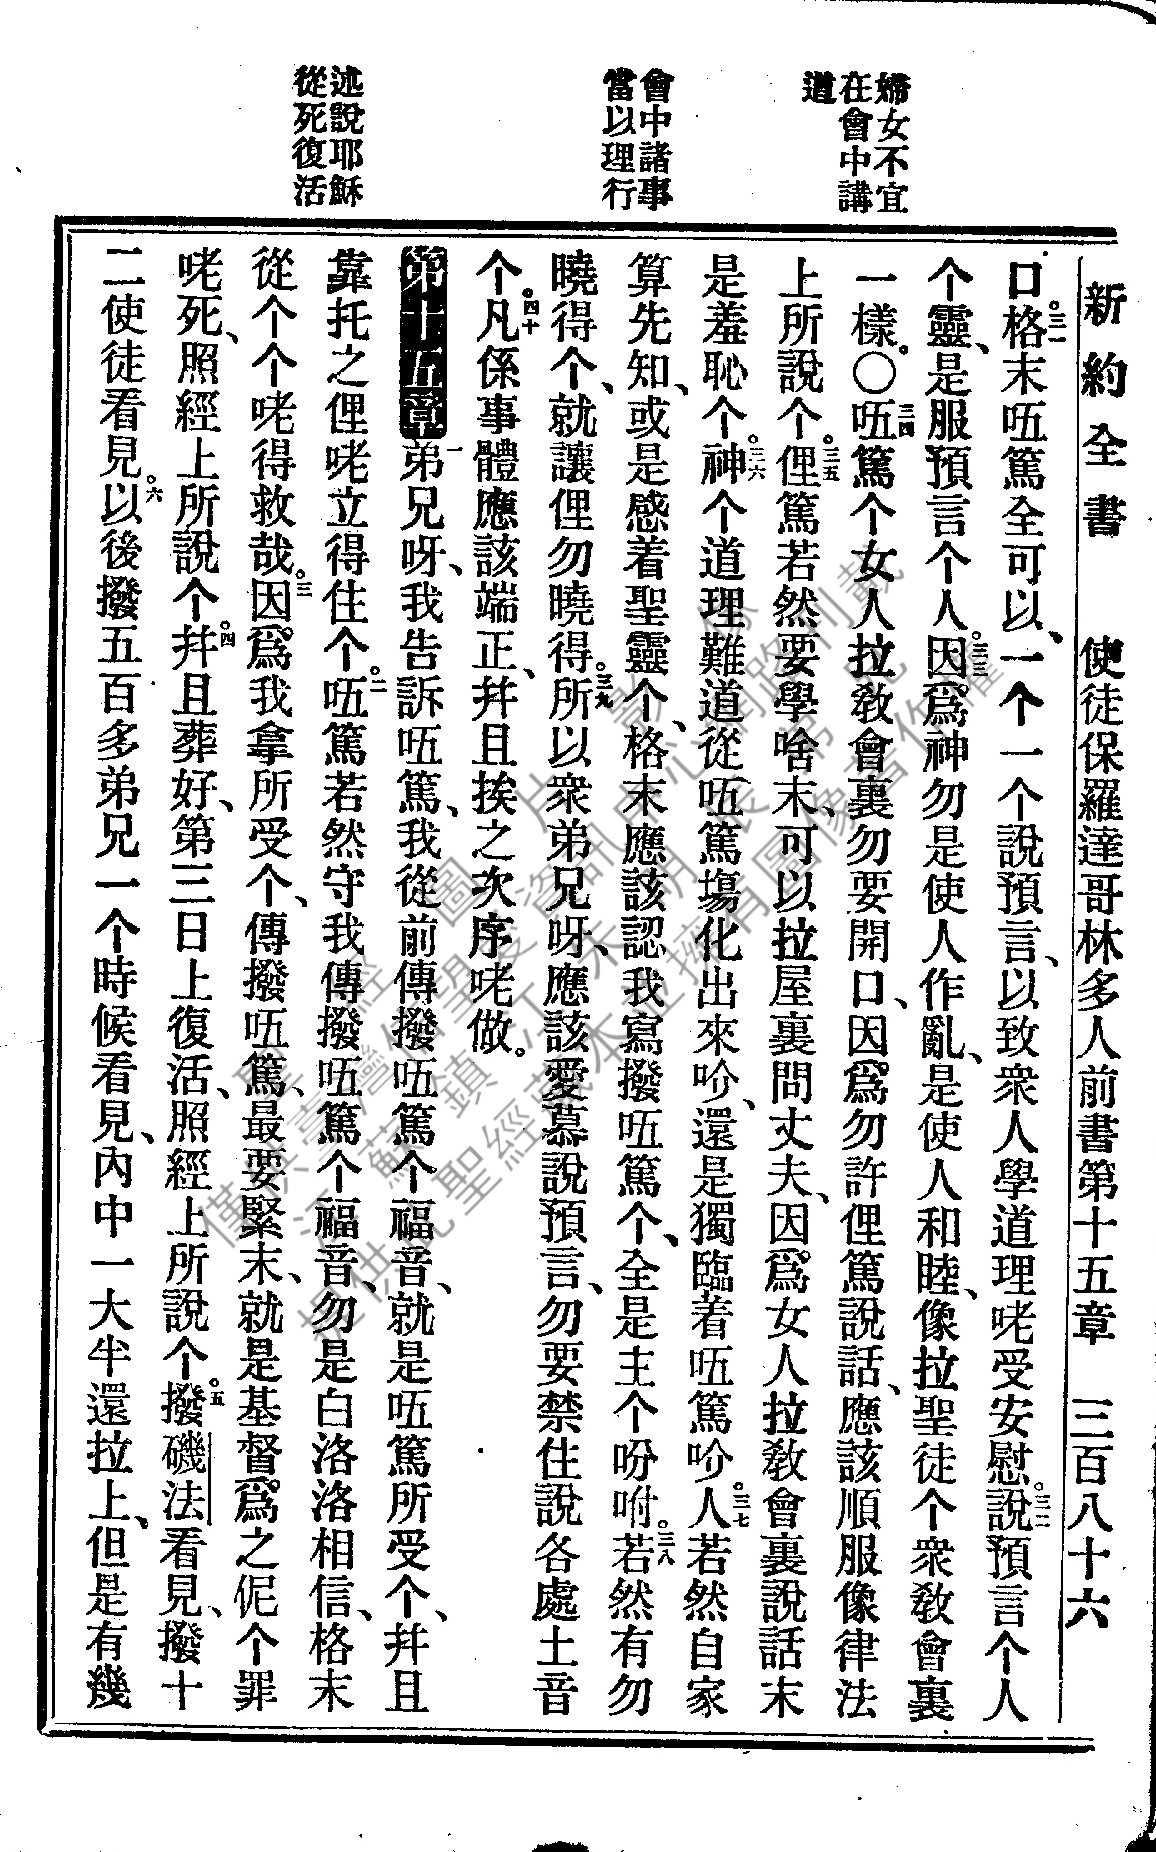 新約全書 使徒保羅達哥林多人前書第十五章 三百八十六
婦女不宜
在會中講
道
會中諸事
當以理行
述說耶穌
從死復活
口。三一格末㕶篤全可以、一个一个說預言、以致衆人學道理咾受安慰。三二說預言个人
个靈、是服預言个人。三三因爲神勿是使人作亂、是使人和睦、像拉聖徒个衆敎會裏
一樣。〇三四㕶篤个女人拉敎會裏勿要開口、因爲勿許俚篤說話、應該順服像律法
上所說个。三五俚篤若然要學啥末、可以拉屋裏問丈夫、因爲女人拉敎會裏說話末
是羞恥个。三六神个道理難道從㕶篤塲化出來吤、還是獨臨着㕶篤吤。三七人若然自家
算先知、或是感着聖靈个、格末應該認我寫撥㕶篤个、全是主个吩咐。三八若然有勿
曉得个、就讓俚勿曉得。三九所以衆弟兄呀、應該愛慕說預言、勿要禁住說各處土音
个。四十凡係事體應該端正、幷且挨之次序咾做。
第十五章 一弟兄呀、我告訴㕶篤、我從前傳撥㕶篤个福音、就是㕶篤所受个、幷且
靠托之俚咾立得住个。二㕶篤若然守我傳撥㕶篤个福音、勿是白洛洛相信、格末
從个个咾得救哉。三因爲我拿所受个、傳撥㕶篤、最要緊末、就是基督爲之伲个罪
咾死、照經上所說个。四幷且葬好、第三日上復活、照經上所說个。五撥磯法看見、撥十
二使徒看見。六以後撥五百多弟兄一个時候看見、內中一大半還拉上、但是有幾